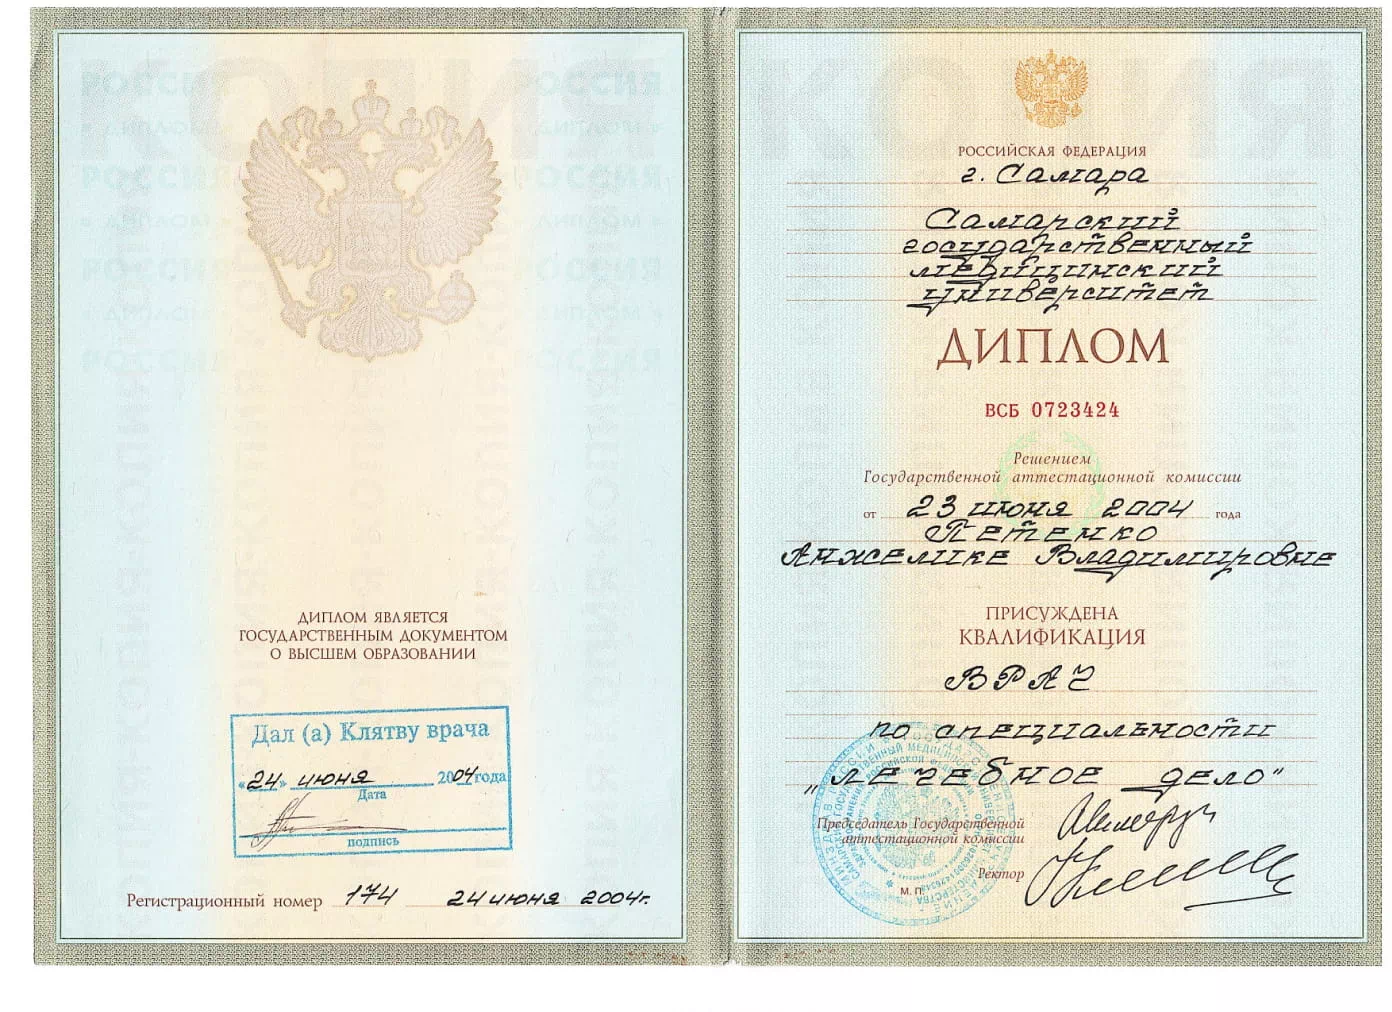 КОПИЯ
РОССИЯ РОССИЯ
« ДИПЛОМ » « ДИПЛОМ »
РОССИЯ РОССИЯ
« ДИПЛОМ » « ДИПЛОМ »
РОССИЯ РОССИЯ
« ДИПЛОМ » « ДИПЛОМ »
РОССИЯ РОССИЯ
ДИПЛОМ ЯВЛЯЕТСЯ
ГОСУДАРСТВЕННЫМ ДОКУМЕНТОМ
О ВЫСШЕМ ОБРАЗОВАНИИ
Дал (а) Клятву врача
«24» июня 2004 года
Дата
подпись
Регистрационный номер 174 24 июня 2004г.
КОПИЯ
РОССИЙСКАЯ ФЕДЕРАЦИЯ
г. Самара
Самарский
государственный
медицинский
университет
ДИПЛОМ
ВСБ 0723424
Решением
Государственной аттестационной комиссии
от 23 июня 2004 года
Петенко
Анжелике Владимировне
ПРИСУЖДЕНА
КВАЛИФИКАЦИЯ
ВРАЧ
по специальности
"лечебное дело"
Председатель Государственной
аттестационной комиссии
Ректор
М. П.